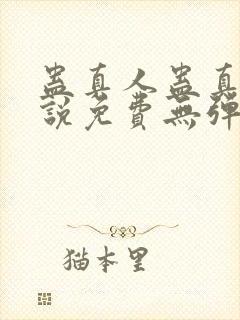 蠱真人蠱真
說免費無彈
猫本里